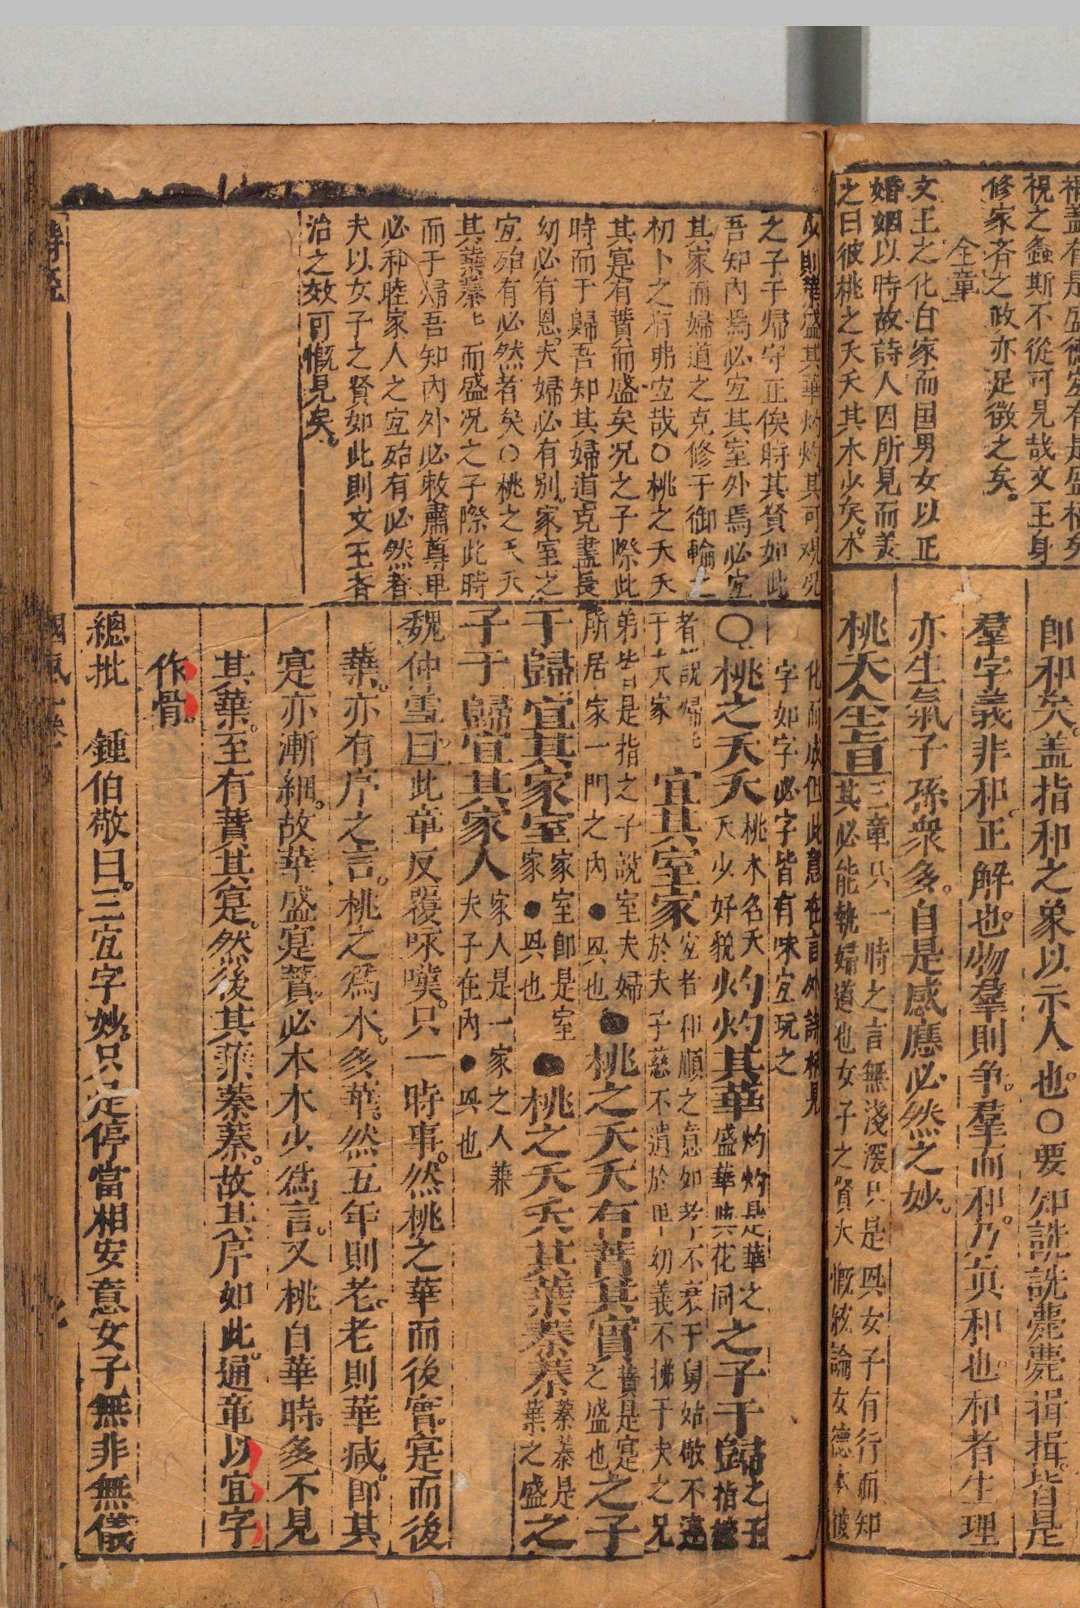 視之螽斯不從可見哉文王身
修家齊之政亦足徵之矣。
全章
文王之化自家而国男女以正
婚姻以時故詩人因所見而羙
之曰彼桃之夭夭其木少矣。木
即和矣。盖指和之象以示人也。〇要知詵詵薨薨揖揖皆是
羣字義非和。正解也。物羣則争。羣而和。乃爲真和也。和者生理
亦生氣子孫衆多。自是感應必然之妙。
桃夭全旨
三章只一時之言無淺深只是因女子有行而知
其必能執婦道也女子之賢大概彼論女德本彼
少則華盛其華灼灼其可观况
之子于归守正俟時其賢如此
吾知內焉必宜其室外焉必宜
其家而婦道之克修于御輪之
初卜之有弗宜哉〇桃之夭夭
其寔有蕡而盛矣况之子際此
時而于歸吾知其婦道克盡長
幼必有恩。夫婦必有别。家室之
宜殆有必然者矣〇桃之夭夭
其葉蓁〻而盛况之子際此時
而于归吾知內外必敕肅尊卑
必和睦家人之宜殆有必然者
夫以女子之賢如此則文王齊
治之效可慨見矣。
化而成但此意在言外詩柄見
字如字必字皆有味宜玩之
〇桃之夭夭
桃木名夭
夭少好貌
灼灼其華
灼灼是華之
盛華與花同
之子于歸
之子
指嫁
者說婦
于夫家
宜其室家
宜者和順之意如孝不衰于舅姑敬不違
於夫子慈不遺於卑幼義不拂于夫之兄
弟皆是指之子說室夫婦
所居家一門之內●興也
●桃之夭夭有蕡其實
蕡是寔
之盛也
之子
于歸宜其家室
家室即是室
家●興也
●桃之夭夭其葉蓁蓁
蓁蓁是
葉之盛
之
子于歸宜其家人
家人是一家之人兼
夫子在內●興也
魏仲雪曰此章反覆咏嘆。只一時事。然桃之華而後實寔而後
葉。亦有序之言。桃之爲木。多華。然五年則老。老則華減。即其
寔亦漸細。故華盛寔蕡。必本木少爲言。又桃自華時。多不見
其葉。至有蕡其寔。然後其葉蓁蓁。故其序如此。通章以宜字
作骨。
總批　鍾伯敬曰。三宜字妙。只是停當相安意女子無非無儀